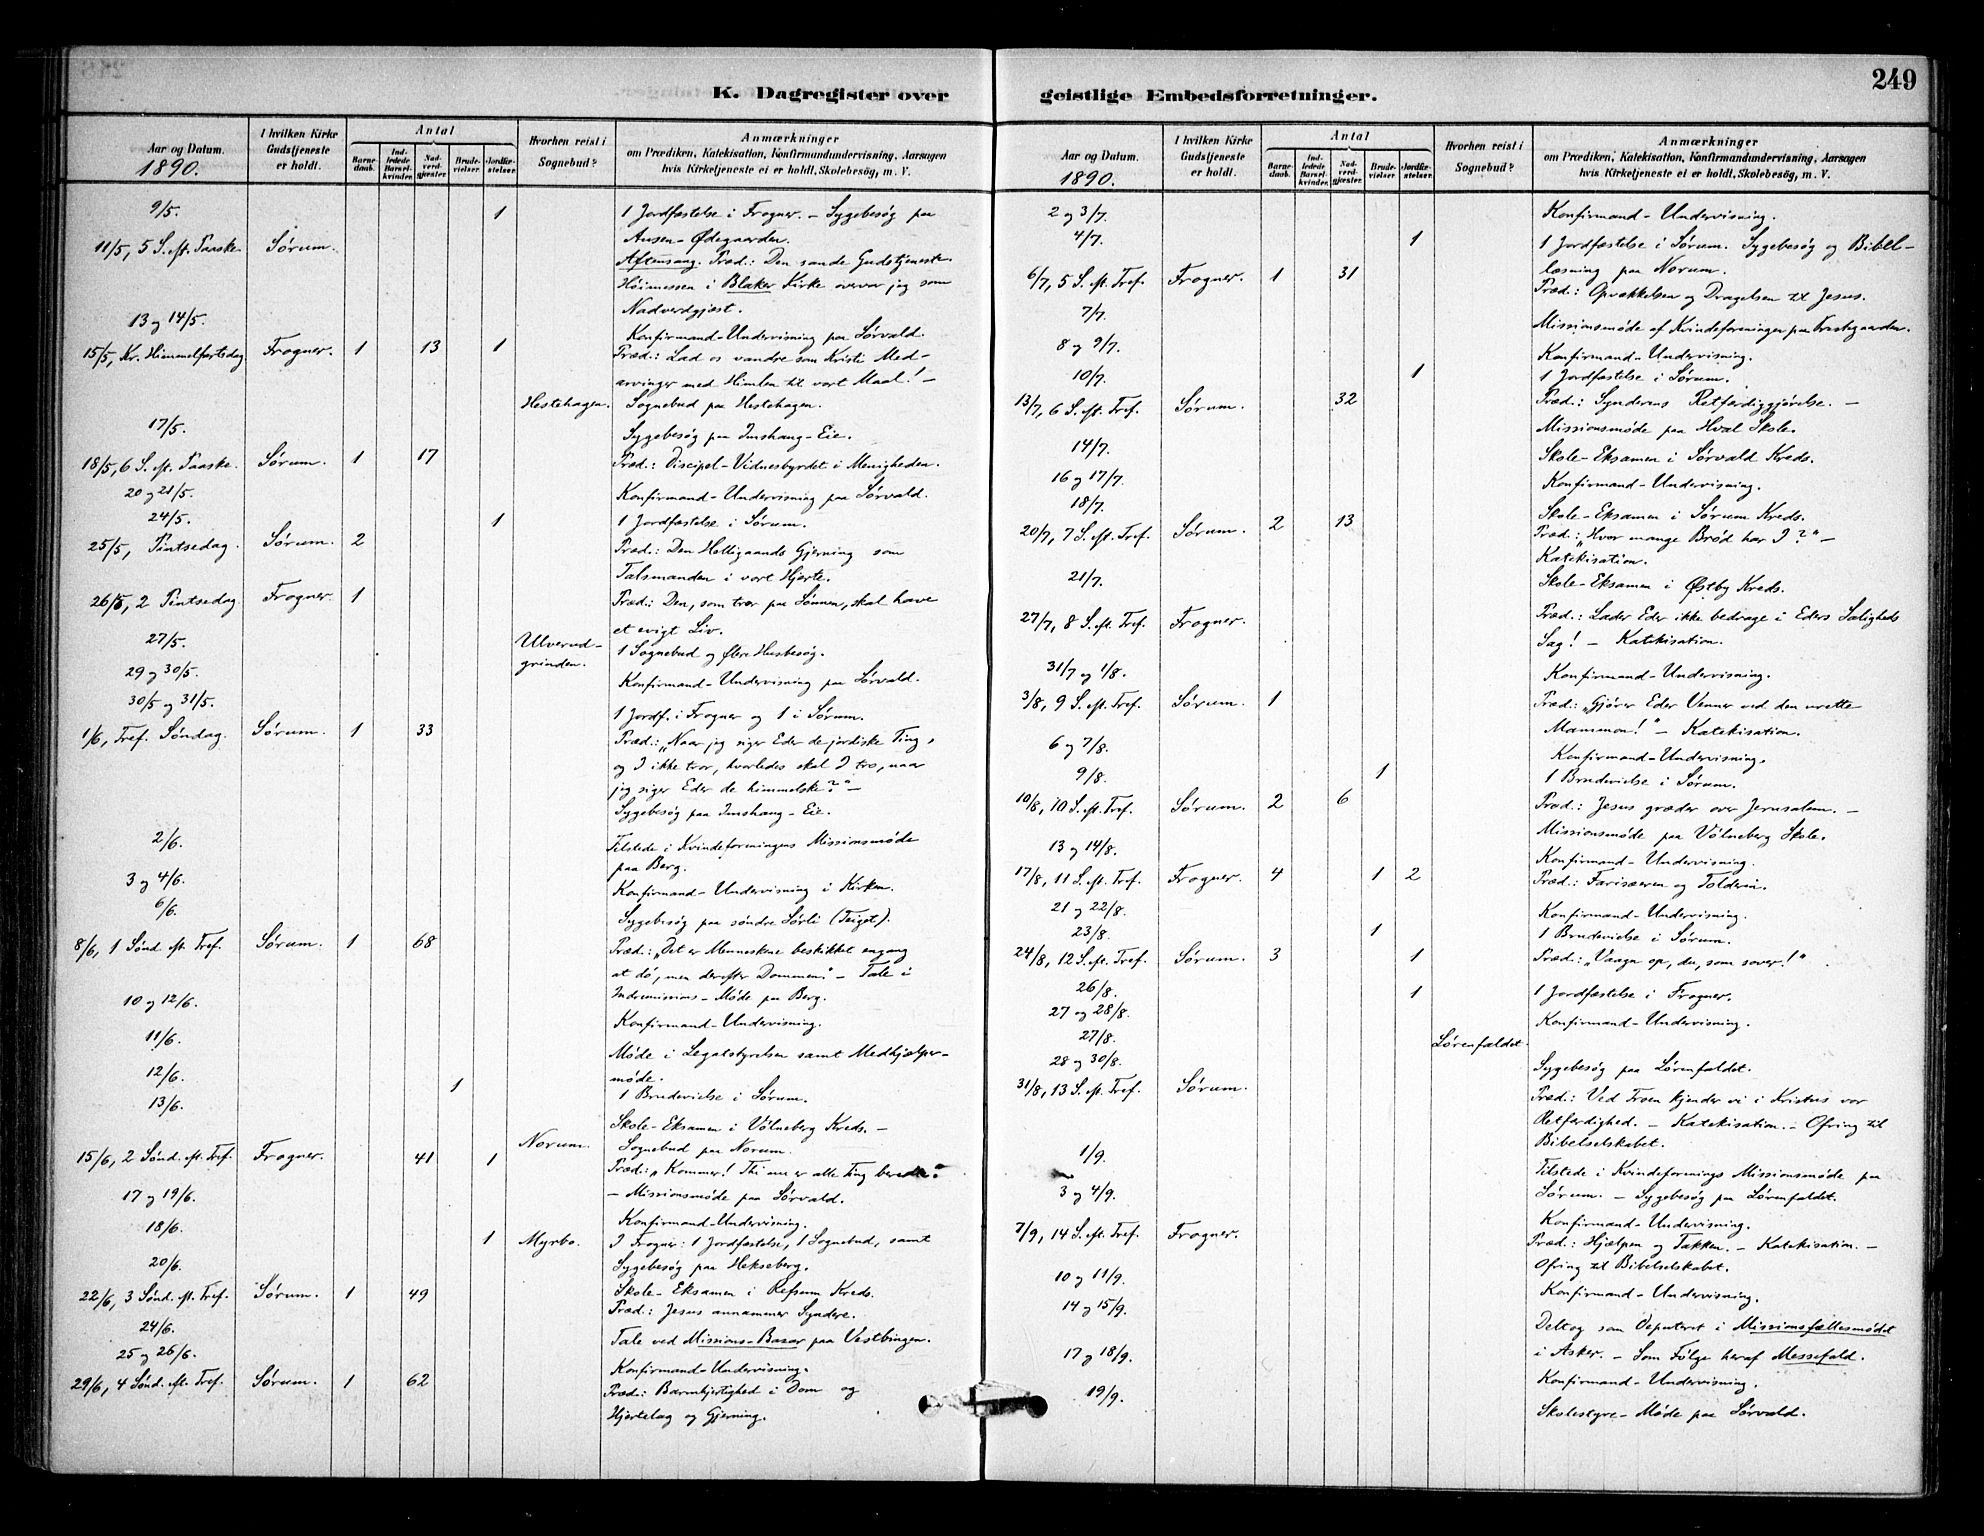 249
K. Dagregister over
Aar og Datum.
1890.
I hvilken Kirke Gudstjeneste er holdt.
Antal
Barnedaab.
Indledede Barselkvinder.
Nadverdgjæster.
Brudevielser.
Jordfæstelser.
Hvorhen reist i Sognebud?
Anmærkninger
om Prædiken, Katekisation, Konfirmandundervisning, Aarsagen
hvis Kirketjeneste ei er holdt, Skolebesøg, m. V.
9/5. 1 1 Jordfæstelse i Frogner. – Sygebesøg paa
Ausen-Ødegaarden.
11/5, 5 S. eft. Paaske. Sørum. Aftensang. Præd.: Den sande Gudstjeneste.
Høimessen i Blaker Kirke overvar jeg som
Nadverdgjæst.
13 og 14/5. Konfirmand-Undervisning paa Sørvald.
15/5, Kr. Himmelfartsdag Frogner. 1 13 1 Præd.: Lad os vandre som Kristi Med-
arvinger med Himlen til vort Maal! –
Hestehagen. Sognebud paa Hestehagen.
17/5. Sygebesøg paa Imshaug-Eie.
18/5, 6 S. eft. Paaske. Sørum. 1 17 Præd.: Discipel-Vidnesbyrdet i Menigheden.
20 og 21/5. Konfirmand-Undervisning paa Sørvald.
24/5. 1 1 Jordfæstelse i Sørum.
25/5, Pintsedag. Sørum. 2 Præd.: Den Helligaands Gjerning som
Talsmanden i vort Hjerte.
26/5, 2 Pintsedag Frogner. 1 Præd.: Den, som tror paa Sønnen, skal have
et evigt Liv.
27/5. Ulverud-
grinden. 1 Sognebud og flere Husbesøg.
29 og 30/5. Konfirmand-Undervisning paa Sørvald.
30/5 og 31/5. 1 Jordf. i Frogner og 1 i Sørum.
1/6, Tref. Søndag. Sørum. 1 33 Præd.: „Naar jeg siger Eder de jordiske Ting,
og I ikke tror, hvorledes skal I tro, naar
jeg siger Eder de himmelske?“ –
Sygebesøg paa Imshaug-Eie.
2/6. Tilstede i Kvindeforeningens Missionsmøde
paa Berg.
3 og 4/6. Konfirmand-Undervisning i Kirken.
6/6. Sygebesøg paa søndre Sørli (Teiget).
8/6, 1 Sønd. eft. Tref. Sørum. 1 68 Præd.: „Det er Menneskene beskikket engang
at dø, men derefter Dommen“ – Tale i
Indremissions-Møde paa Berg.
10 og 12/6. Konfirmand-Undervisning.
11/6. Møde i Legatstyrelsen samt Medhjælper-
møde.
12/6. 1 1 Brudevielse i Sørum.
13/6. Skole-Eksamen i Vølneberg Kreds. –
Norum. Sognebud paa Norum.
15/6, 2 Sønd. eft. Tref. Frogner. 41 1 Præd.: „Kommer! Thi nu er alle Ting beredte“
– Missionsmøde paa Sørvald.
17 og 19/6. Konfirmand-Undervisning.
18/6. 1 Myrbo. I Frogner: 1 Jordfæstelse, 1 Sognebud, samt
Sygebesøg paa Hekseberg.
20/6. Skole-Eksamen i Refsum Kreds.
22/6, 3 Sønd. eft. Tref. Sørum. 1 49 Præd.: Jesus annammer Syndere.
24/6. Tale ved Missions-Basar paa Vestbingen.
25 og 26/6. Konfirmand-Undervisning.
29/6, 4 Sønd. eft. Tref. Sørum. 1 62 Præd.: Barmhjertighed i Dom og
Hjertelag og Gjerning.
geistlige Embedsforretninger.
Aar og Datum.
1890.
I hvilken Kirke Gudstjeneste er holdt.
Antal
Barnedaab.
Indledede Barselkvinder.
Nadverdgjæster.
Brudevielser.
Jordfæstelser.
Hvorhen reist i Sognebud?
Anmærkninger
om Prædiken, Katekisation, Konfirmandundervisning, Aarsagen
hvis Kirketjeneste ei er holdt, Skolebesøg, m. V.
2 og 3/7. Konfirmand-Undervisning.
4/7. 1 1 Jordfæstelse i Sørum. Sygebesøg og Bibel-
læsning paa Norum.
6/7, 5 S. eft. Tref. Frogner. 1 31 Præd.: Opvækkelsen og Dragelsen til Jesus.
7/7. Missionsmøde af Kvindeforeningen paa Prestegaarden.
8 og 9/7. Konfirmand-Undervisning.
10/7. 1 1 Jordfæstelse i Sørum.
13/7, 6 S. eft. Tref. Sørum. 32 Præd.: Synderens Retfærdiggjørelse. –
Missionsmøde paa Hval Skole.
14/7. Skole-Eksamen i Sørvald Kreds.
16 og 17/7. Konfirmand-Undervisning.
18/7. Skole-Eksamen i Sørum Kreds.
20/7, 7 S. eft. Tref. Sørum. 2 13 Præd.: „Hvor mange Brød har I?“ –
Katekisation.
21/7. Skole-Eksamen i Østby Kreds.
27/7, 8 S. eft. Tref. Frogner. Præd.: Lader Eder ikke bedrage i Eders Saligheds
Sag! – Katekisation.
31/7 og 1/8. Konfirmand-Undervisning.
3/8, 9 S. eft. Tref. Sørum. 1 Præd.: „Gjører Eder Venner ved den urette
Mammon!“ – Katekisation.
6 og 7/8. Konfirmand-Undervisning.
9/8. 1 1 Brudevielse i Sørum.
10/8, 10 S. eft. Tref. Sørum. 2 6 Præd.: Jesus græder over Jerusalem. –
Missionsmøde paa Vølneberg Skole.
13 og 14/8. Konfirmand-Undervisning.
17/8, 11 S. eft. Tref. Frogner. 4 1 2 Præd.: Farisæeren og Tolderen.
21 og 22/8. Konfirmand-Undervisning.
23/8. 1 1 Brudevielse i Sørum.
24/8, 12 S. eft. Tref. Sørum. 3 1 Præd.: „Vaagn op, du, som sover!“
26/8. 1 1 Jordfæstelse i Frogner.
27 og 28/8. Konfirmand-Undervisning.
27/8. Lørenfaldet.
28 og 30/8. Sygebesøg paa Lørenfaldet.
31/8, 13 S. eft. Tref. Sørum. Præd.: Ved Troen kjender vi i Kristus vor
Retfærdighed. – Katekisation. – Ofring til
Bibelselskabet.
1/9. Tilstede i Kvindeforenings Missionsmøde paa
Sørum. – Sygebesøg paa Lørenfaldet.
3 og 4/9. Konfirmand-Undervisning.
7/9, 14 S. eft. Tref. Frogner. Præd.: Hjælpen og Takken. – Katekisation. –
Ofring til Bibelselskabet.
10 og 11/9. Konfirmand-Undervisning.
14 og 15/9. Deltog som Deputeret i Missionsfællesmødet
i Asker. – Som Følge heraf Messefald.
17 og 18/9. Konfirmand-Undervisning.
19/9. Skolestyre-Møde paa Sørvald.